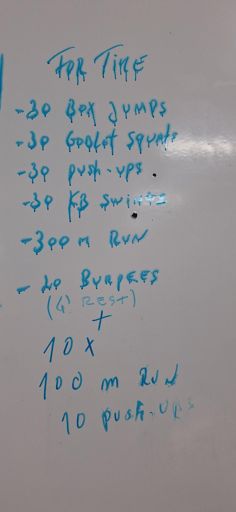 FOR TIME
-30 BOX JUMPS
-30 GOBLET SQUATS
-30 PUSH-UPS
-30 KB SWINGS
-300 m RUN
-20 BURPEES
(4' REST)
+
10 X
100 m RUN
10 PUSH-UPS